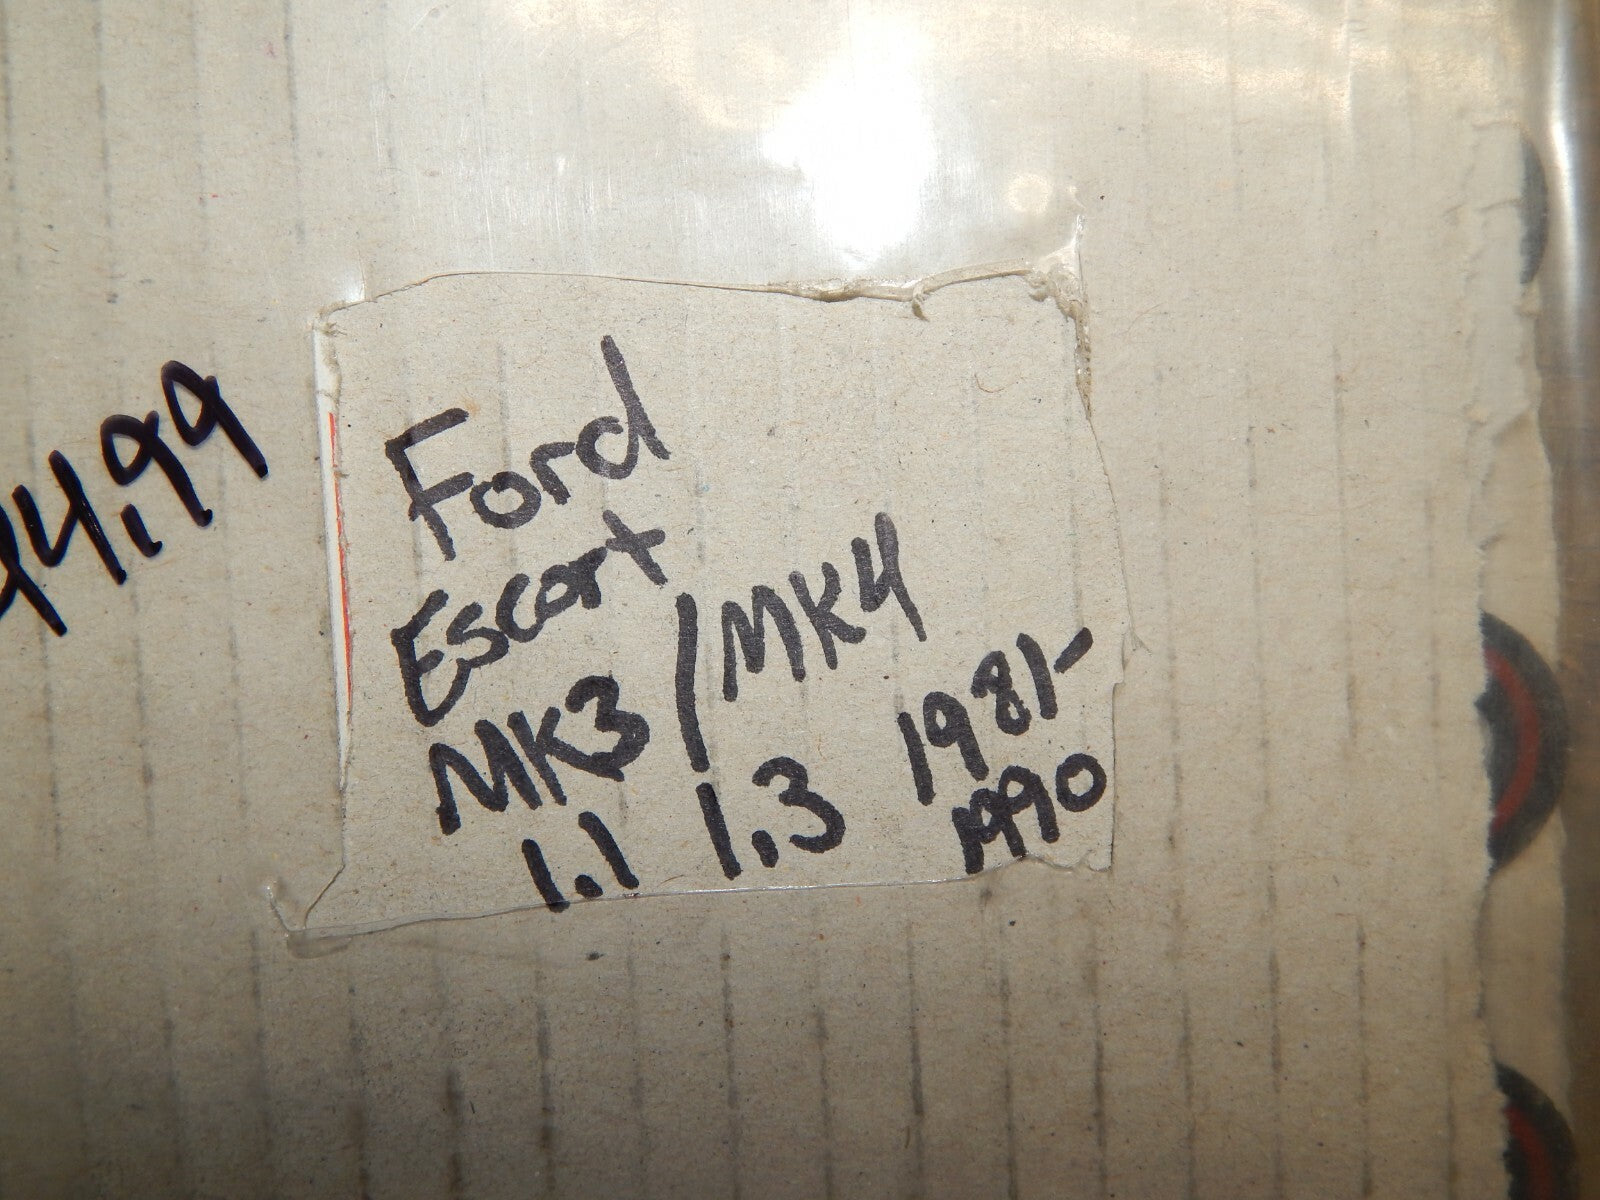 44.99
Ford
Escort
MK3/MK4
1.1 1.3 1981-
1990